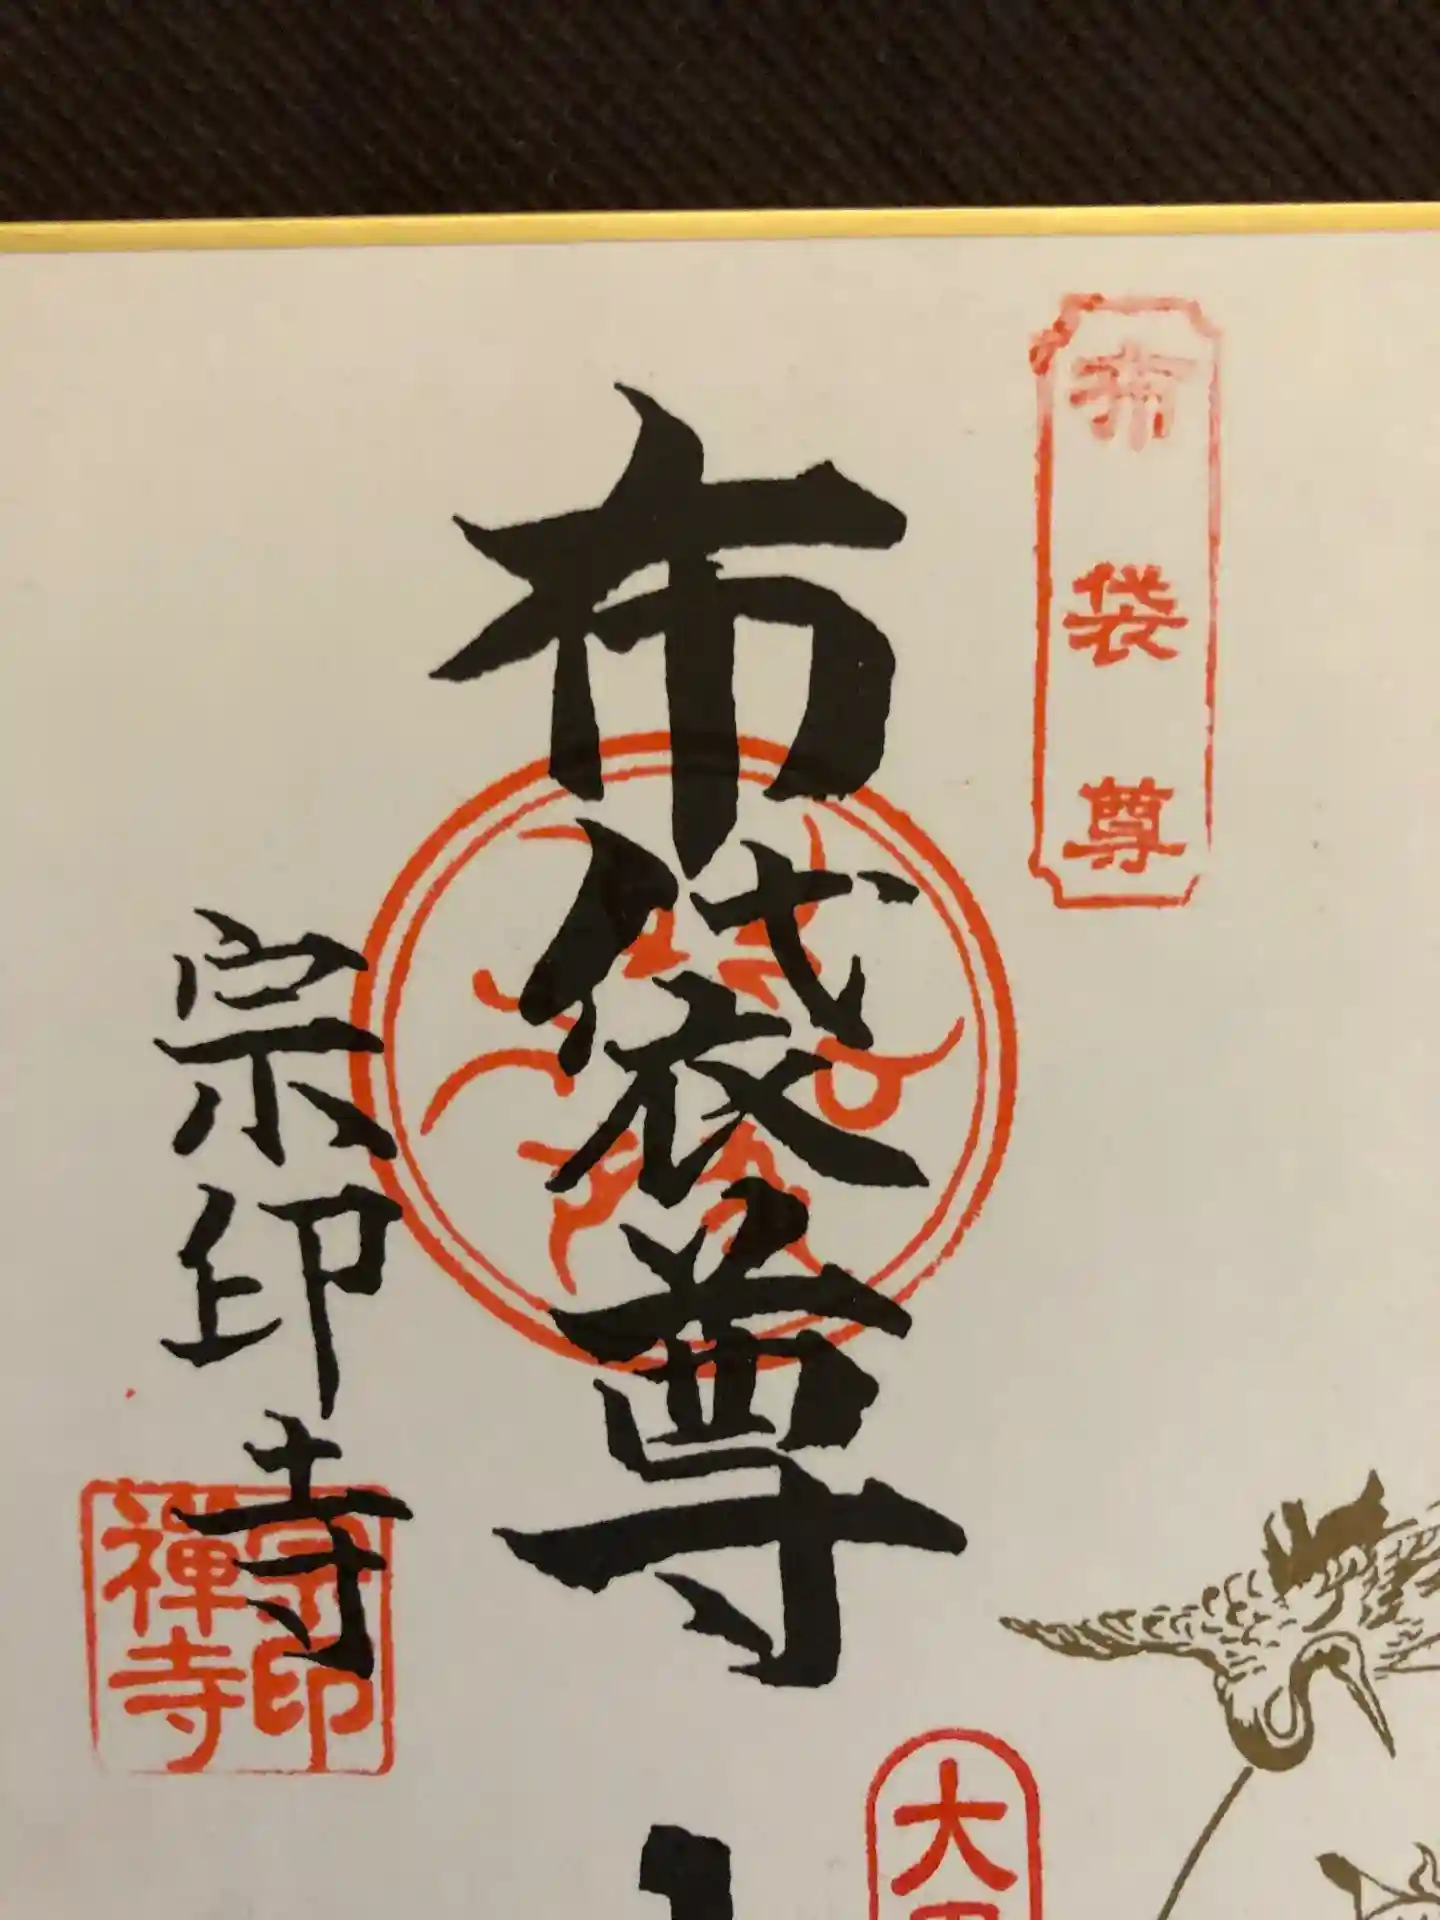 布袋尊
布袋尊
宗印寺
宗印
禅寺
大